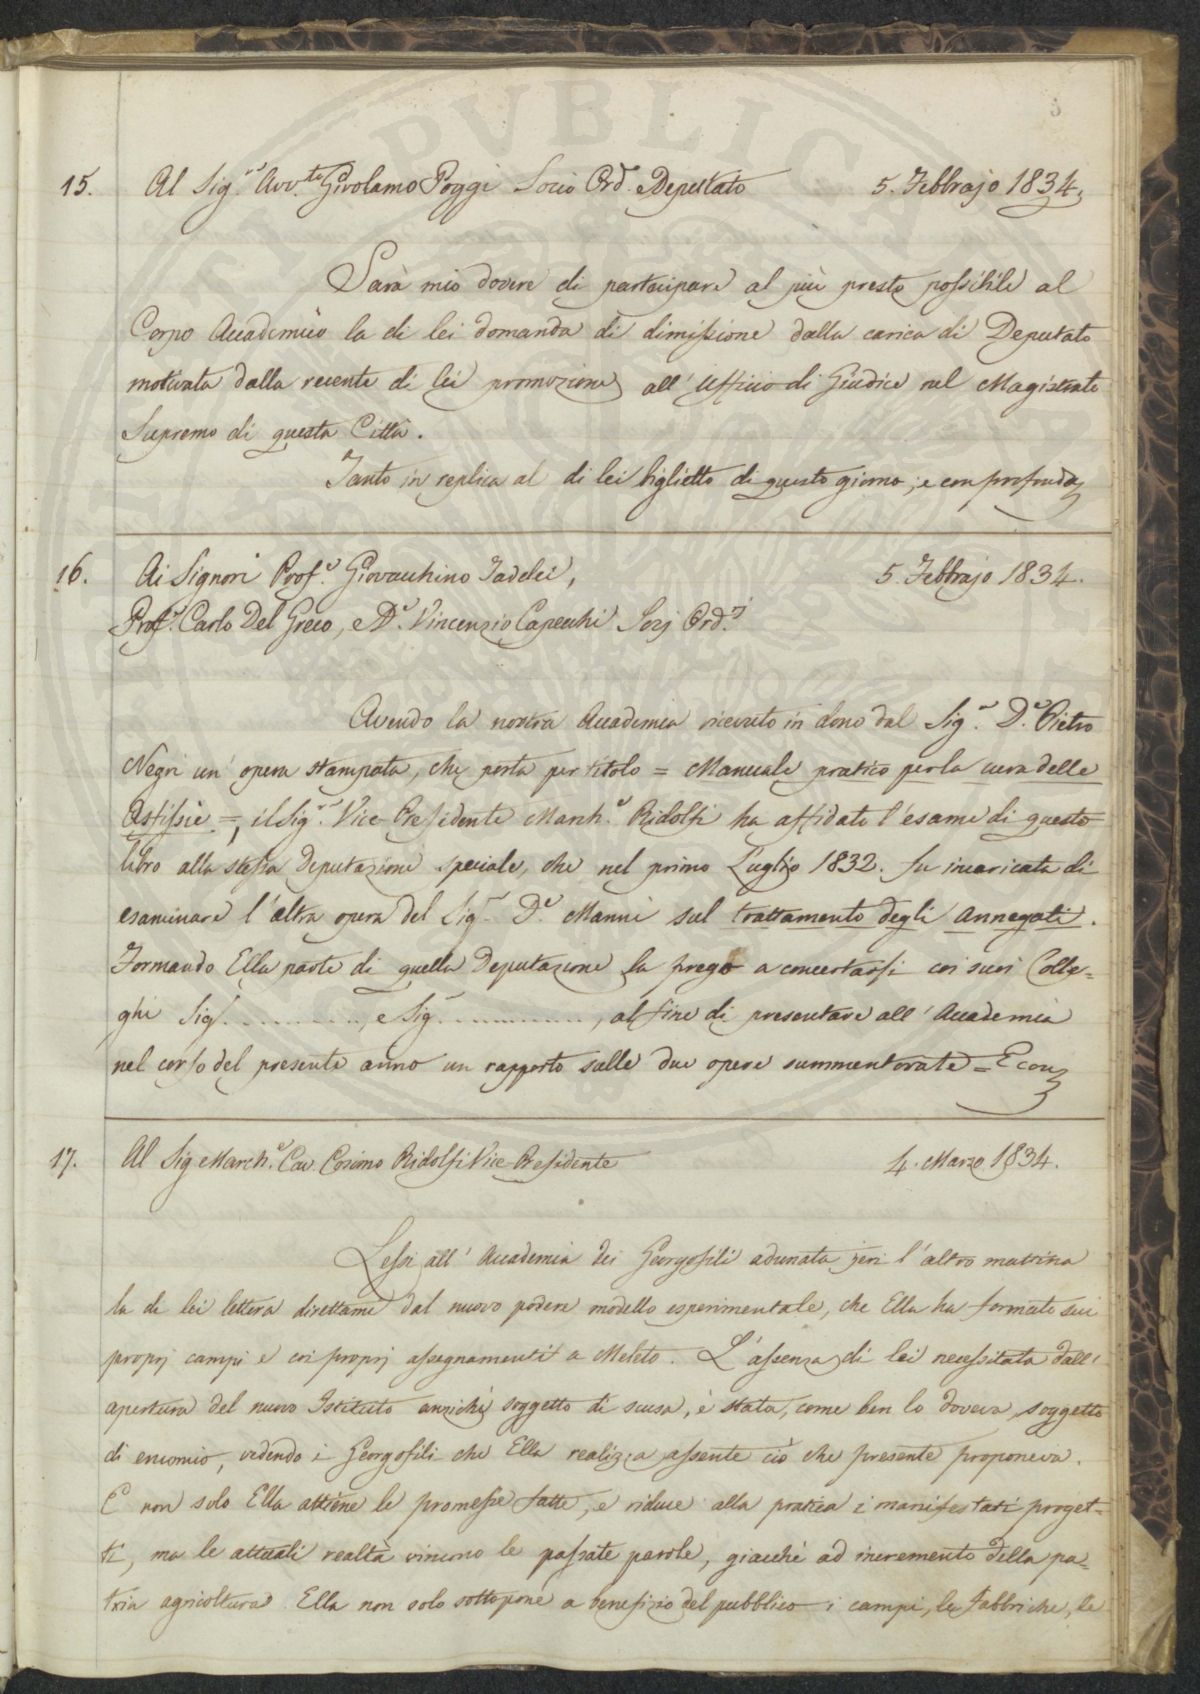 3
15. Al Sig.r Avv.to Girolamo Poggi Socio Ord. Deputato 5. Febbrajo 1834.
Sarà mio dovere di partecipare al più presto possibile al
Corpo Accademico la di lei domanda di dimissione dalla carica di Deputato
motivata dalla recente di lei promozione all'Uffizio di Giudice nel Magistrato
Supremo di questa Città.
Tanto in replica al di lei biglietto di questo giorno, e con profonda
16. Ai Signori Prof.e Giovacchino Tadelei, 5. Febbrajo 1834.
Prof.e Carlo Del Greco, e D.e Vincenzio Capecchi Socj Ord.j
Avendo la nostra Accademia ricevuto in dono dal Sig.r D.e Pietro
Negri un'opera stampata, che porta per titolo = Manuale pratico per la cura delle
Asfissie =, il Sig.r Vice-Presidente March.e Ridolfi ha affidato l'esame di questo
libro alla stessa Deputazione speciale, che nel primo Luglio 1832. fu incaricata di
esaminare l'altra opera del Sig.r D.e Manni sul trattamento degli Annegati.
Formando Ella parte di quella Deputazione la prego a concertarsi coi suoi Colle=
ghi Sig.r ............, e Sig.r ............, al fine di presentare all'Accademia
nel corso del presente anno un rapporto sulle due opere summentovate = E con
17. Al Sig March.e Cav. Cosimo Ridolfi Vice-Presidente 4. Marzo 1834.
Lessi all'Accademia dei Georgofili adunata jeri l'altro mattina
la di lei lettera direttami dal nuovo podere modello esperimentale, che Ella ha formato sui
proprj campi e coi proprj assegnamenti a Meleto. L'assenza di lei necessitata dall'
apertura del nuovo Istituto anzichè soggetto di scusa, è stata, come ben lo doveva, soggetto
di encomio, vedendo i Georgofili che Ella realizza assente ciò che presente proponeva.
E non solo Ella attiene le promesse fatte, e riduce alla pratica i manifestati proget=
ti, ma le attuali realtà vincono le passate parole, giacchè ad incremento della pa=
tria agricoltura Ella non solo sottopone a benefizio del pubblico i campi, le fabbriche, le